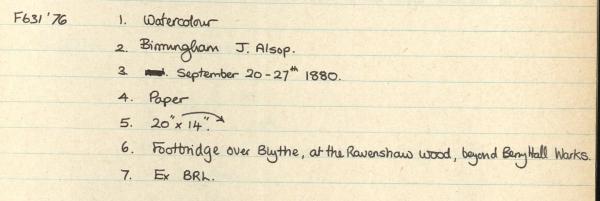 F631 '76 1. Watercolour
2. Birmingham J. Alsop.
3. September 20-27th 1880.
4. Paper
5. 20" x 14".
6. Footbridge over Blythe, at the Ravenshaw Wood, beyond Berry Hall Works.
7. Ex BRL.